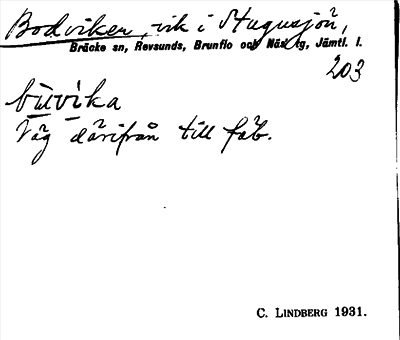 Bodviken, vik i Stugusjön,
Bräcke sn, Revsunds, Brunflo och Näs tg, Jämtl. l.
203
būvika
Väg därifrån till fäb.
C. LINDBERG 1931.